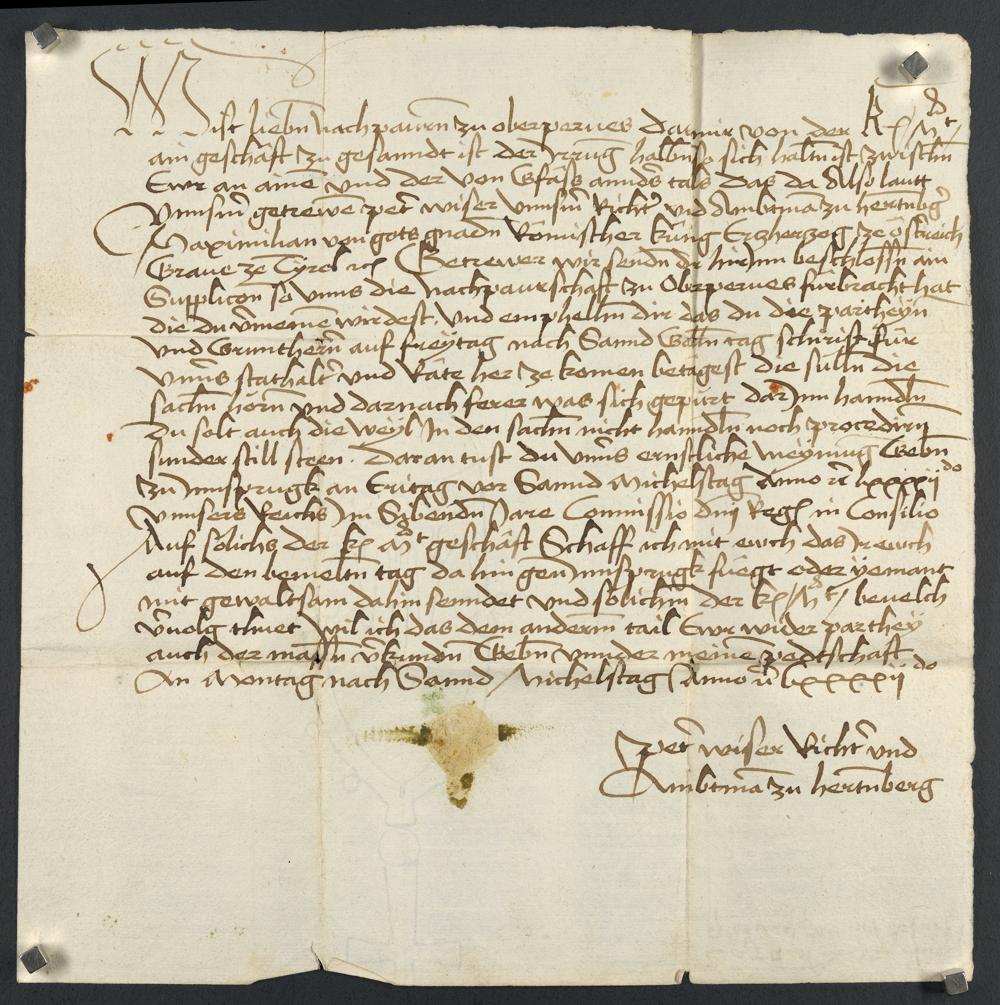 Wist liebn nachpaurn zu oberperves Das mir von der K. Mt.
ain geschäft zu gesanndt ist der irrung halbn so sich haltn ist zwischn
Ewr an ainē und der von Gfäss annders tails Das da Also lautt
Unnserm getrewē peter wiser unnserm Richter und Ambtmā zu hertnbg
Maximilian von gots gnadn Römischer küng Ertzhertzog ze östreich
Grave ze Tyrol etc Getrewer wir sendn dir hir Inn beschlossn ain
Supplicon so unns die nachpaurschaft zu Oberperves fürbracht hat
die du vernemē wirdest. Und emphelhn dir das du die partheyn
und Grunthern auf freytag nach Sannd tag schirist für
unns stathalter und Räte her ze komen betagest die sülln die
sachn hörn und darnach ferer was sich gepürt dar Inn hanndln
Du solt auch die weyl In den sachn nicht hanndln noch procedirn
sunder still steen. Daran tust du unns ernstliche meynung Gebn
zu Innsprugk an Eritag vor Sannd Michelstag Anno etc lxxxxij do
unnsers Reichs Im Sybendn Jare Commissio dnj Regis in Consilio
Auf solichs der k. Mt geschäft Schaff ich mit ewch das Ir ewch
auf den bemeltn tag da hin gen Innsprugk fuegt oder yemant
mit gewaltsam dahin senndet und solichm der k. Mt. bevelch
volg thuet wil ich das dem anderm tail Ewr wider parthey
auch der massn verkündn Gebn unnder meinē pedtschaft
An Montag nach Sannd Michelstag Anno etc lxxxxij do
peter wiser Richter und
Ambtmā zu hertnberg